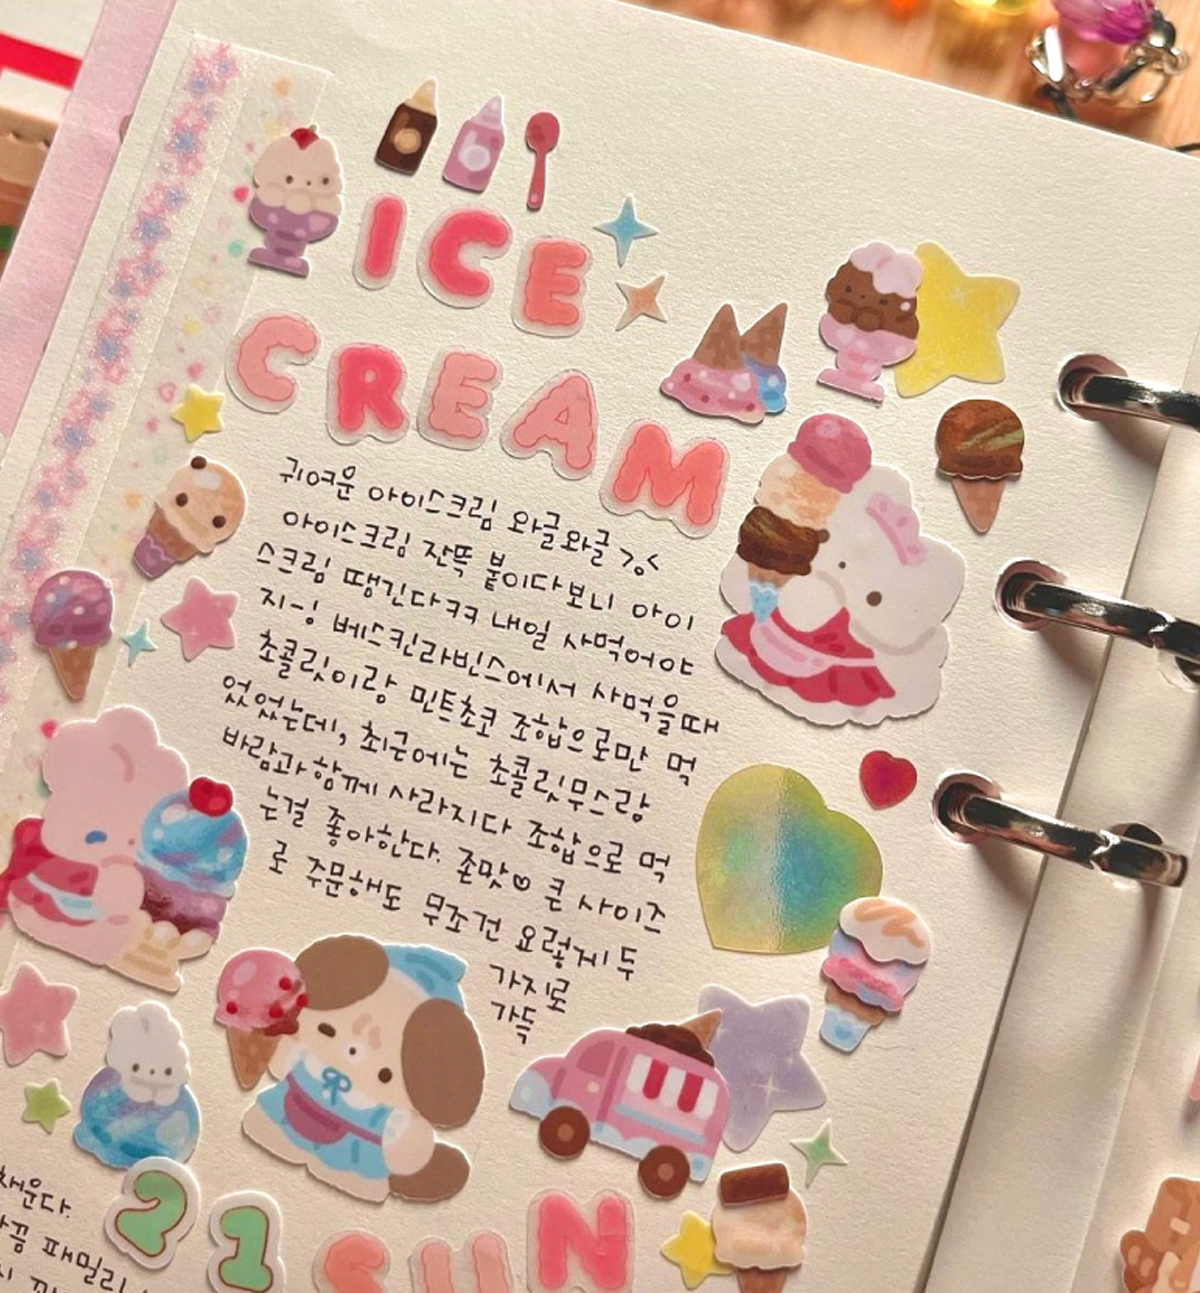 ICE
CREAM
귀여운 아이스크림 와글와글 >3<
아이스크림 잔뜩 붙이다보니 아이
스크림 땡긴다ㅋㅋ 내일 사먹어야
지-! 베스킨라빈스에서 사먹을때
초콜릿이랑 민트초코 조합으로만 먹
었었는데, 최근에는 초콜릿무스랑
바람과함께 사라지다 조합으로 먹
는걸 좋아한다. 존맛♡ 큰 사이즈
로 주문해도 무조건 요렇게 두
가지로
가득
채운다.
패밀리
21 SUN